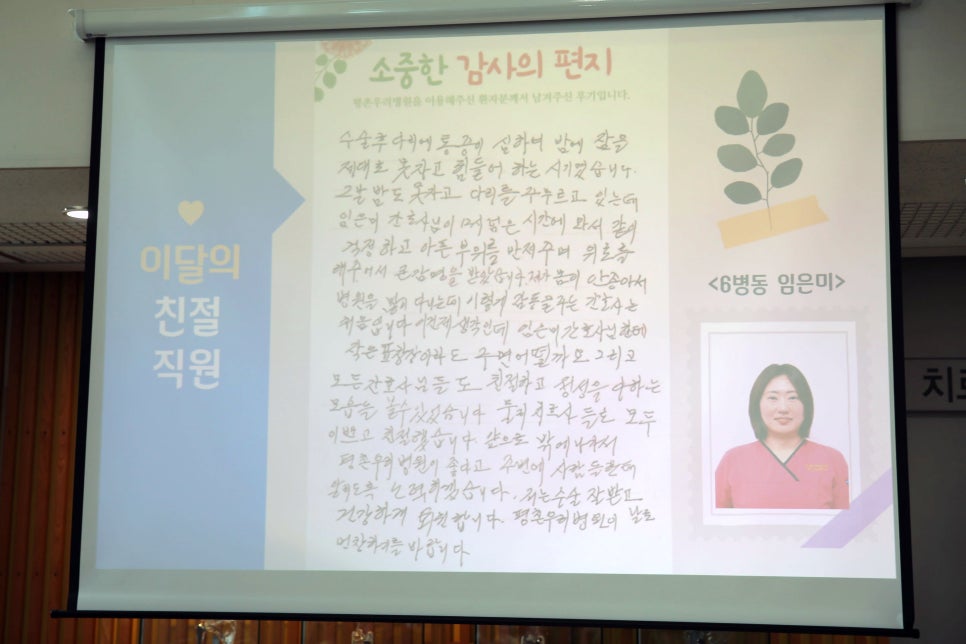 소중한 감사의 편지
평촌우리병원을 이용해주신 환자분께서 남겨주신 후기입니다.
이달의
친절
직원
수술후 다리에 통증이 심하여 밤에 잠을
제대로 못자고 힘들어 하는 시기였습니다.
그날 밤도 못자고 다리를 주무르고 있는데
임은미 간호사님이 12시 넘은 시간에 와서 같이
걱정하고 아픈 부위를 만져주며 위로를
해주어서 큰감명을 받았습니다. 제가 몸이 안좋아서
병원을 많이 다니는데 이렇게 감동을주는 간호사는
처음입니다 이건제생각인데 임은미간호사님한테
작은표창장이라도 주면어떨까요 그리고
모든간호사님들도 친절하고 정성을 다하는
모습을 볼수있었습니다 물리치료사 들도 모두
이쁘고 친절했습니다. 앞으로 밖에나가서
평촌우리병원이 좋다고 주변에 사람들한테
알리도록 노력하겠습니다. 저는수술 잘받고
건강하게 퇴원합니다. 평촌우리병원이 날로
번창하기를 바랍니다
<6병동 임은미>
치료